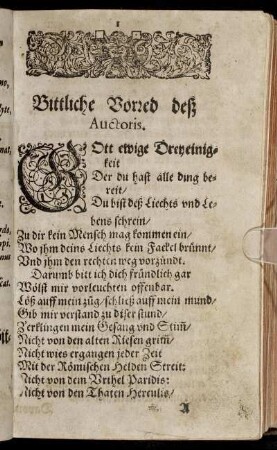 1
Bittliche Vorred deß
Auctoris.
GOtt ewige Dreyeinig-
keit
Der du hast alle ding be-
reit/
Du bist deß Liechts vnd Le-
bens schrein/
Zu dir kein Mensch mag kommen ein/
Wo jhm deins Liechts kein Fackel brünnt/
Vnd jhm den rechten weg vorzündt.
Darumb bitt ich dich fründlich gar
Wölst mir vorleuchten offenbar.
Löß auff mein züg/schließ auff mein mund/
Gib mir verstand zu diser stund/
Zerklingen mein Gesang vnd Stim̃/
Nicht von den alten Riesen grim̃/
Nicht wies ergangen jeder Zeit
Mit der Römischen Helden Streit:
Nicht von dem Vrthel Paridis:
Nicht von den Thaten Herculis/
A